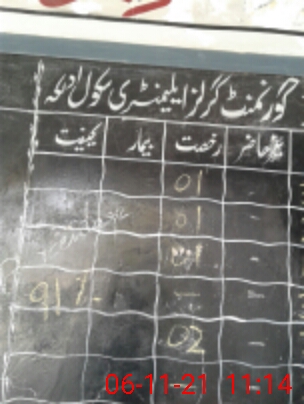 گورنمنٹ گرلز ایلیمنٹری سکول
غیر حاضر رخصت بیمار کیفیت
- 01
- 01
-
- - 91%
- 02
06-11-21 11:14